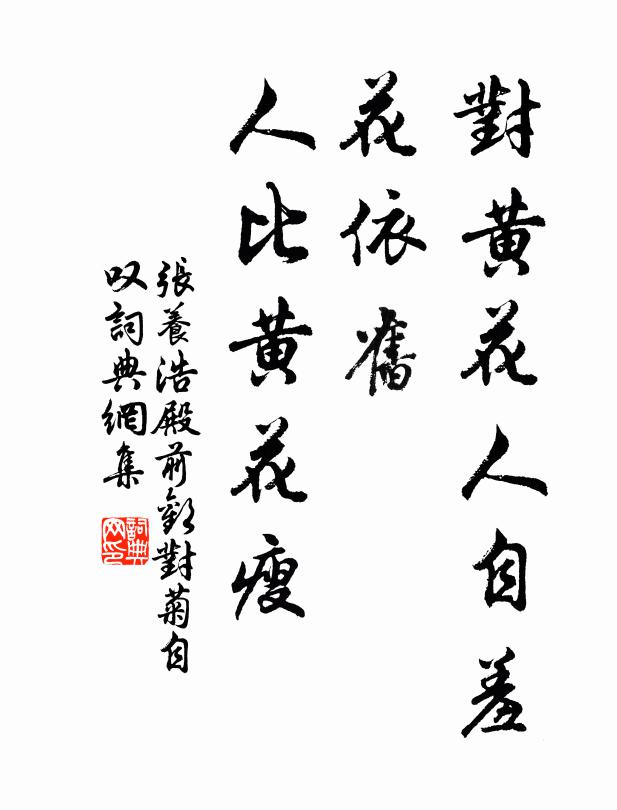 對黄花人自羞
花依舊
人比黄花瘦
張養浩殿前歡對菊自
叹詞典網集
詞典網印